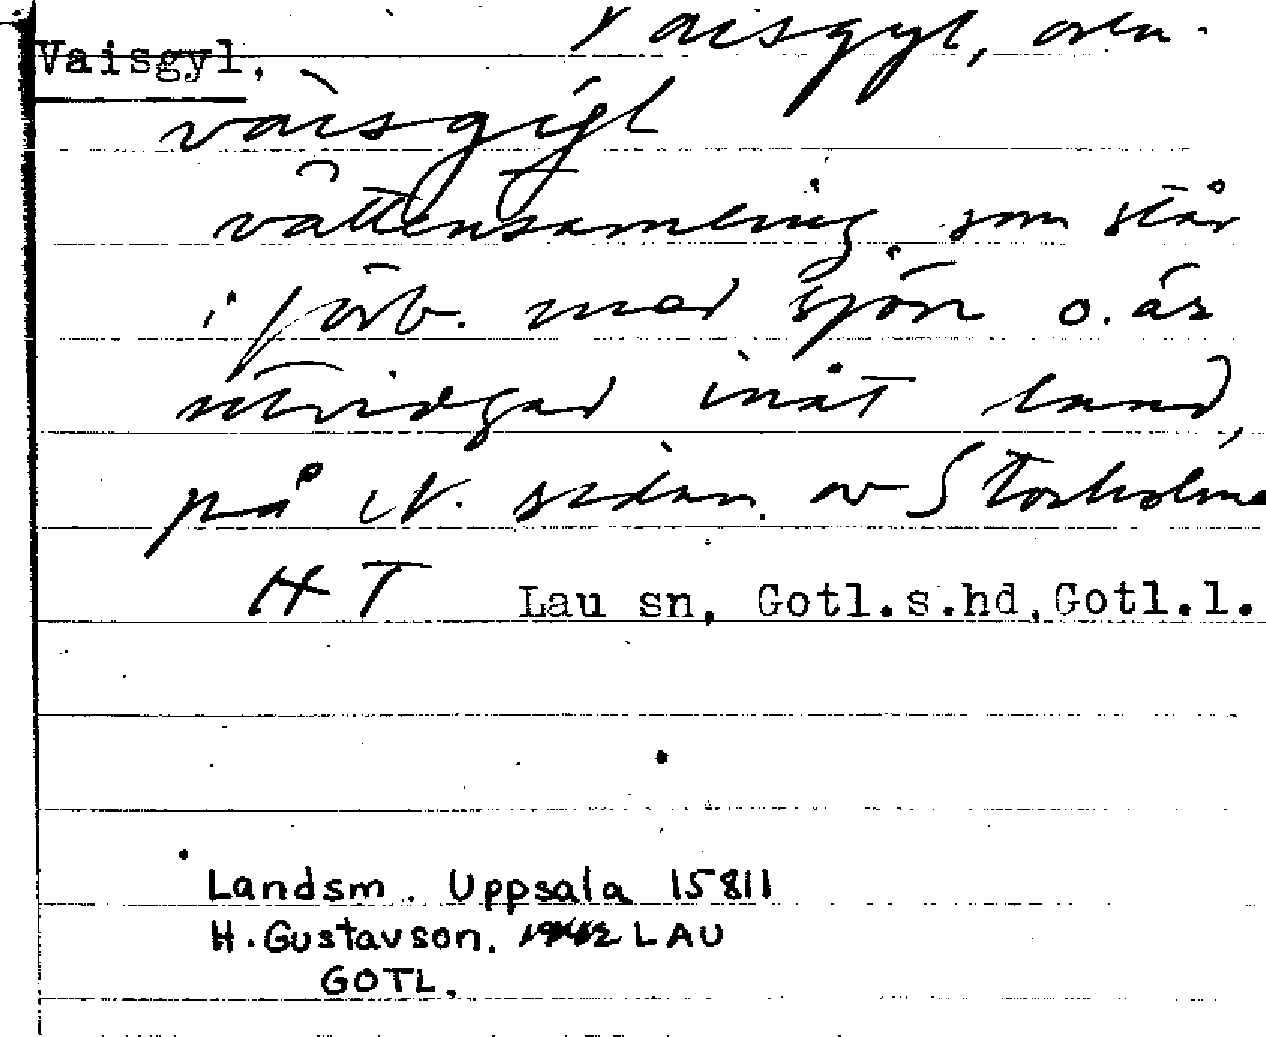 Vaisgyl.
Vaisgyl,
vaisgyl
vattensamling, som står
i förb. med sjön o. är
utvidgad inåt land,
på N. sidan av Storholme
HT Lau sn, Gotl.s.hd, Gotl.l.
Landsm. Uppsala 15811
H. Gustavson. 1942 LAU
GOTL.